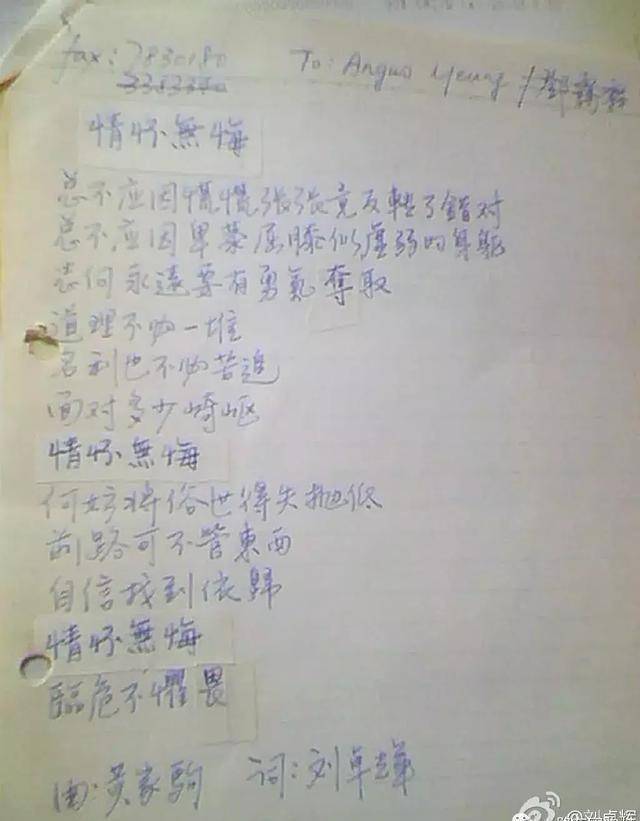 fax: 7830180
3383340
To: Angus Yeung / 鄧
情怀無悔
总不应因慌慌張張竟反轉了錯对
总不应因卑恭屈膝似虛弱的身軀
為何永遠要有勇氣奪取
道理不妨一堆
名利也不妨苦追
面对多少崎岖
情怀無悔
何妨将俗世得失抛低
前路可不管東西
自信找到依歸
情怀無悔
臨危不懼畏
曲:黃家駒 词:刘卓辉
@刘卓辉